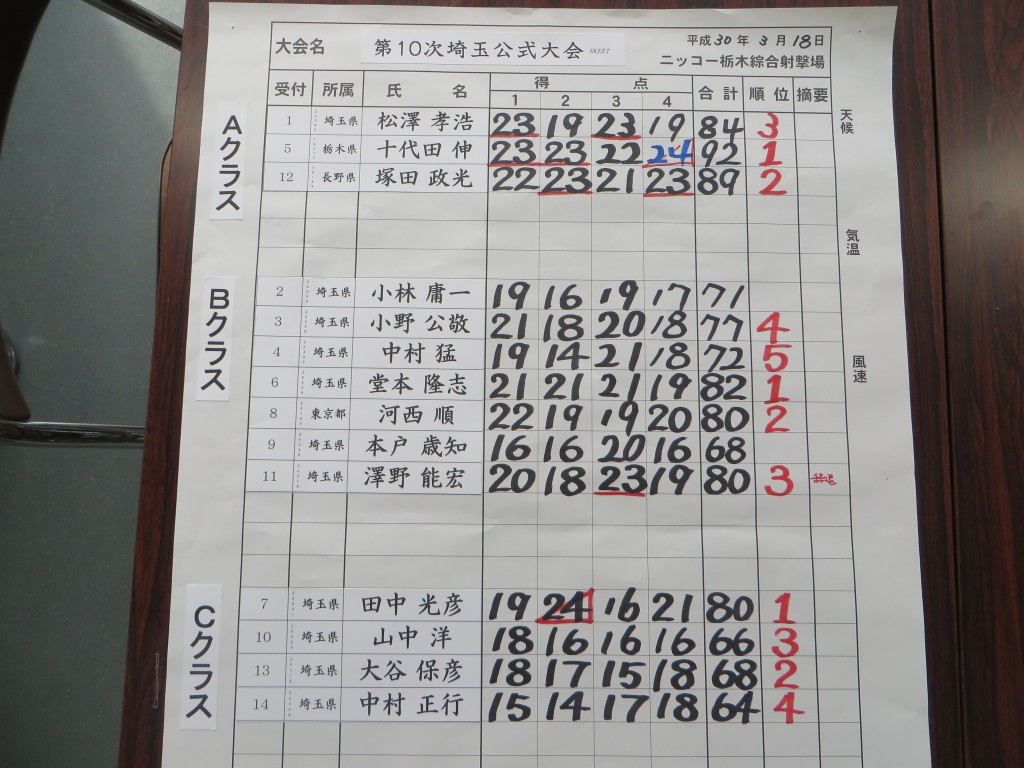 大会名 第10次埼玉公式大会 SKEET 平成30年3月18日
ニッコー栃木綜合射撃場
受付 所属 氏名 得点 合計 順位 摘要
1 2 3 4
Aクラス
1 埼玉県 松澤 孝浩 23 19 23 19 84 3
5 栃木県 十代田 伸 23 23 22 24 92 1
12 長野県 塚田 政光 22 23 21 23 89 2
天候
気温
風速
Bクラス
2 埼玉県 小林 庸一 19 16 19 17 71
3 埼玉県 小野 公敬 21 18 20 18 77 4
4 埼玉県 中村 猛 19 14 21 18 72 5
6 埼玉県 堂本 隆志 21 21 21 19 82 1
8 東京都 河西 順 22 19 19 20 80 2
9 埼玉県 本戸 歳知 16 16 20 16 68
11 埼玉県 澤野 能宏 20 18 23 19 80 3
Cクラス
7 埼玉県 田中 光彦 19 24 16 21 80 1
10 埼玉県 山中 洋 18 16 16 16 66 3
13 埼玉県 大谷 保彦 18 17 15 18 68 2
14 埼玉県 中村 正行 15 14 17 18 64 4